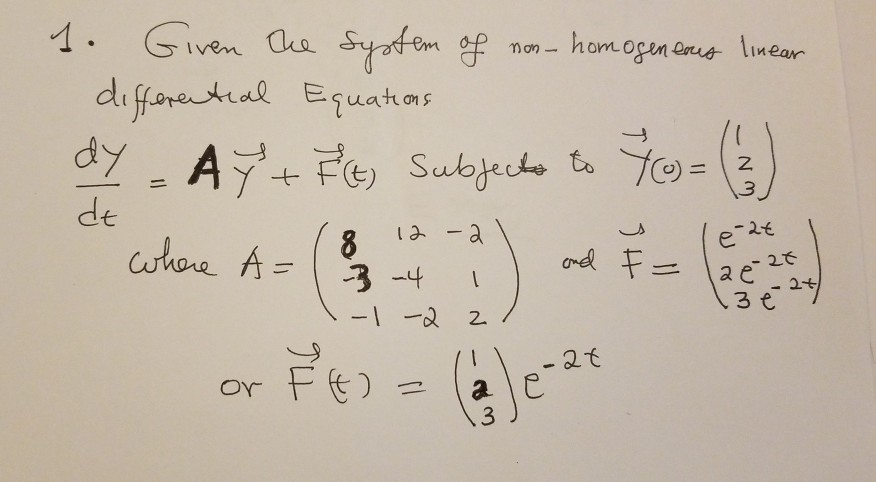 1. Given the System of non-homogeneous linear
differential Equations
dY/dt = A Y⃗ + F⃗(t) Subject to Y⃗(0) = (1 2 3)
where A = (8 12 -2; -3 -4 1; -1 -2 2) and F⃗ = (e^-2t; 2e^-2t; 3e^-2t)
or F⃗(t) = (1 2 3) e^-2t